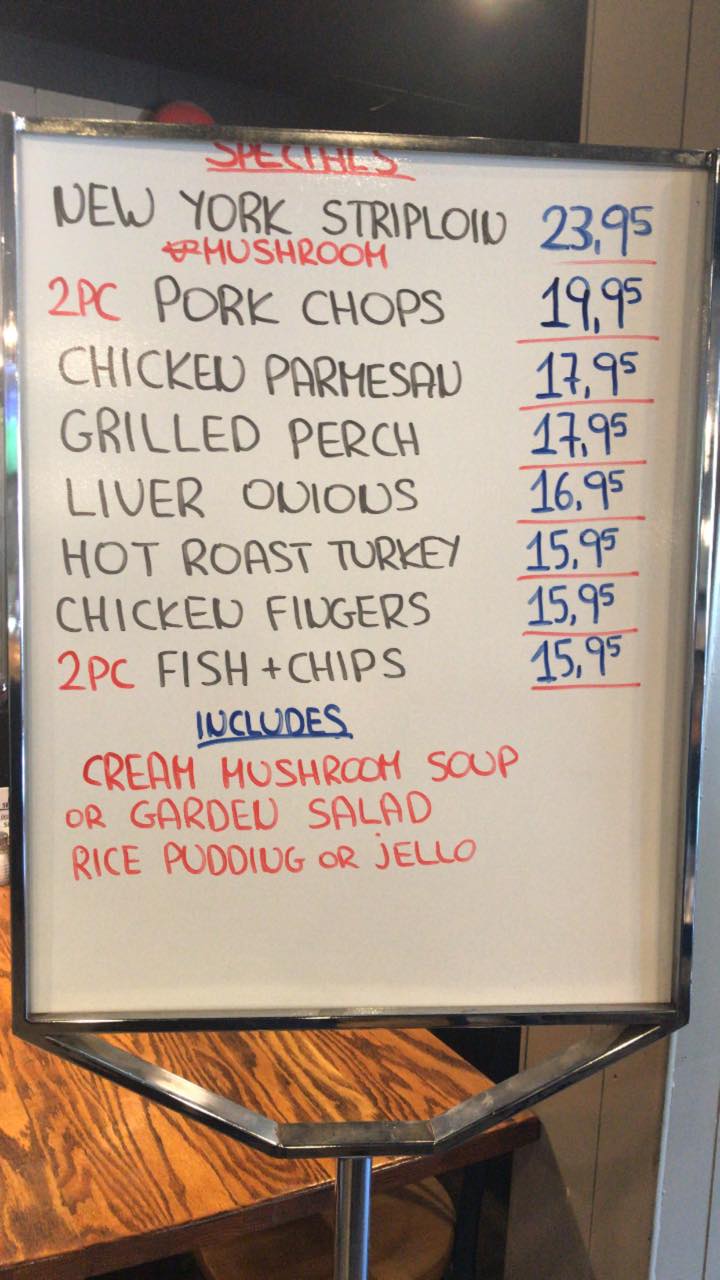 SPECIALS
NEW YORK STRIPLOIN 23,95
MUSHROOM
2PC PORK CHOPS 19,95
CHICKEN PARMESAN 17,95
GRILLED PERCH 17,95
LIVER ONIONS 16,95
HOT ROAST TURKEY 15,95
CHICKEN FINGERS 15,95
2PC FISH + CHIPS 15,95
INCLUDES
CREAM MUSHROOM SOUP
OR GARDEN SALAD
RICE PUDDING OR JELLO